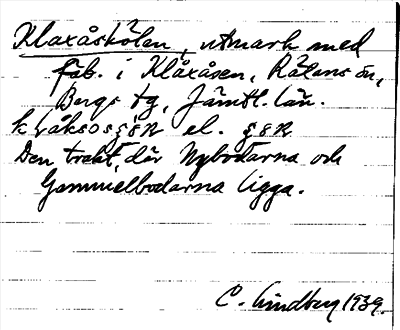 Klaxåskölen, utmark med
fäb. i Klaxåsen, Rätans sn,
Bergs tg, Jämtl. län.
el.
Den trakt, där Nybodarna och
Gammelbodarna ligga.
C. Lindberg 1939.